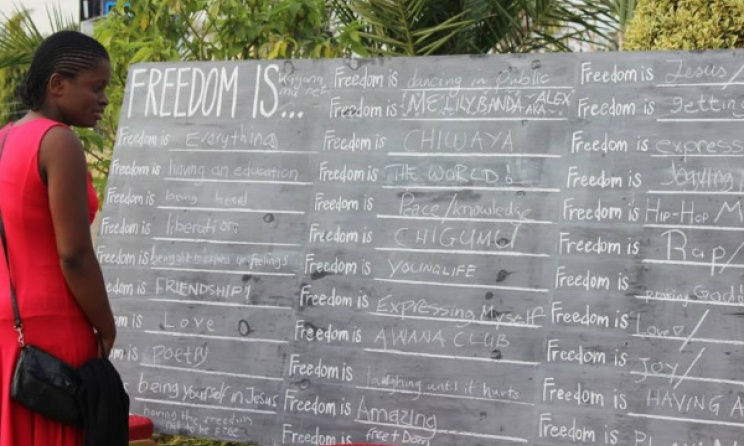 FREEDOM IS...
Freedom is Everything
Freedom is having an education
Freedom is being heard
Freedom is liberation
Freedom is being able to express
Freedom is FRIENDSHIP!
m is Love
m is POETRY
being yourself in Jesus
having the freedom
not to be free
Freedom is dancing in Public
Freedom is MELILY BANDA ALEX
AKA
Freedom is CHIWAYA
Freedom is THE WORLD!
Freedom is Peace/knowledge
Freedom is CHIGUMU
Freedom is YOUNGLIFE
Freedom is Expressing Myself
Freedom is AWANA CLUB
Freedom is laughing until it hurts
Freedom is Amazing
Freedom is freedom
Freedom is Jesus/
Freedom is getting
Freedom is express
Freedom is
Freedom is HIP-HOP M
Freedom is Rap/
Freedom is God
Freedom is Love/
Freedom is Joy/
Freedom is HAVING A
Freedom is